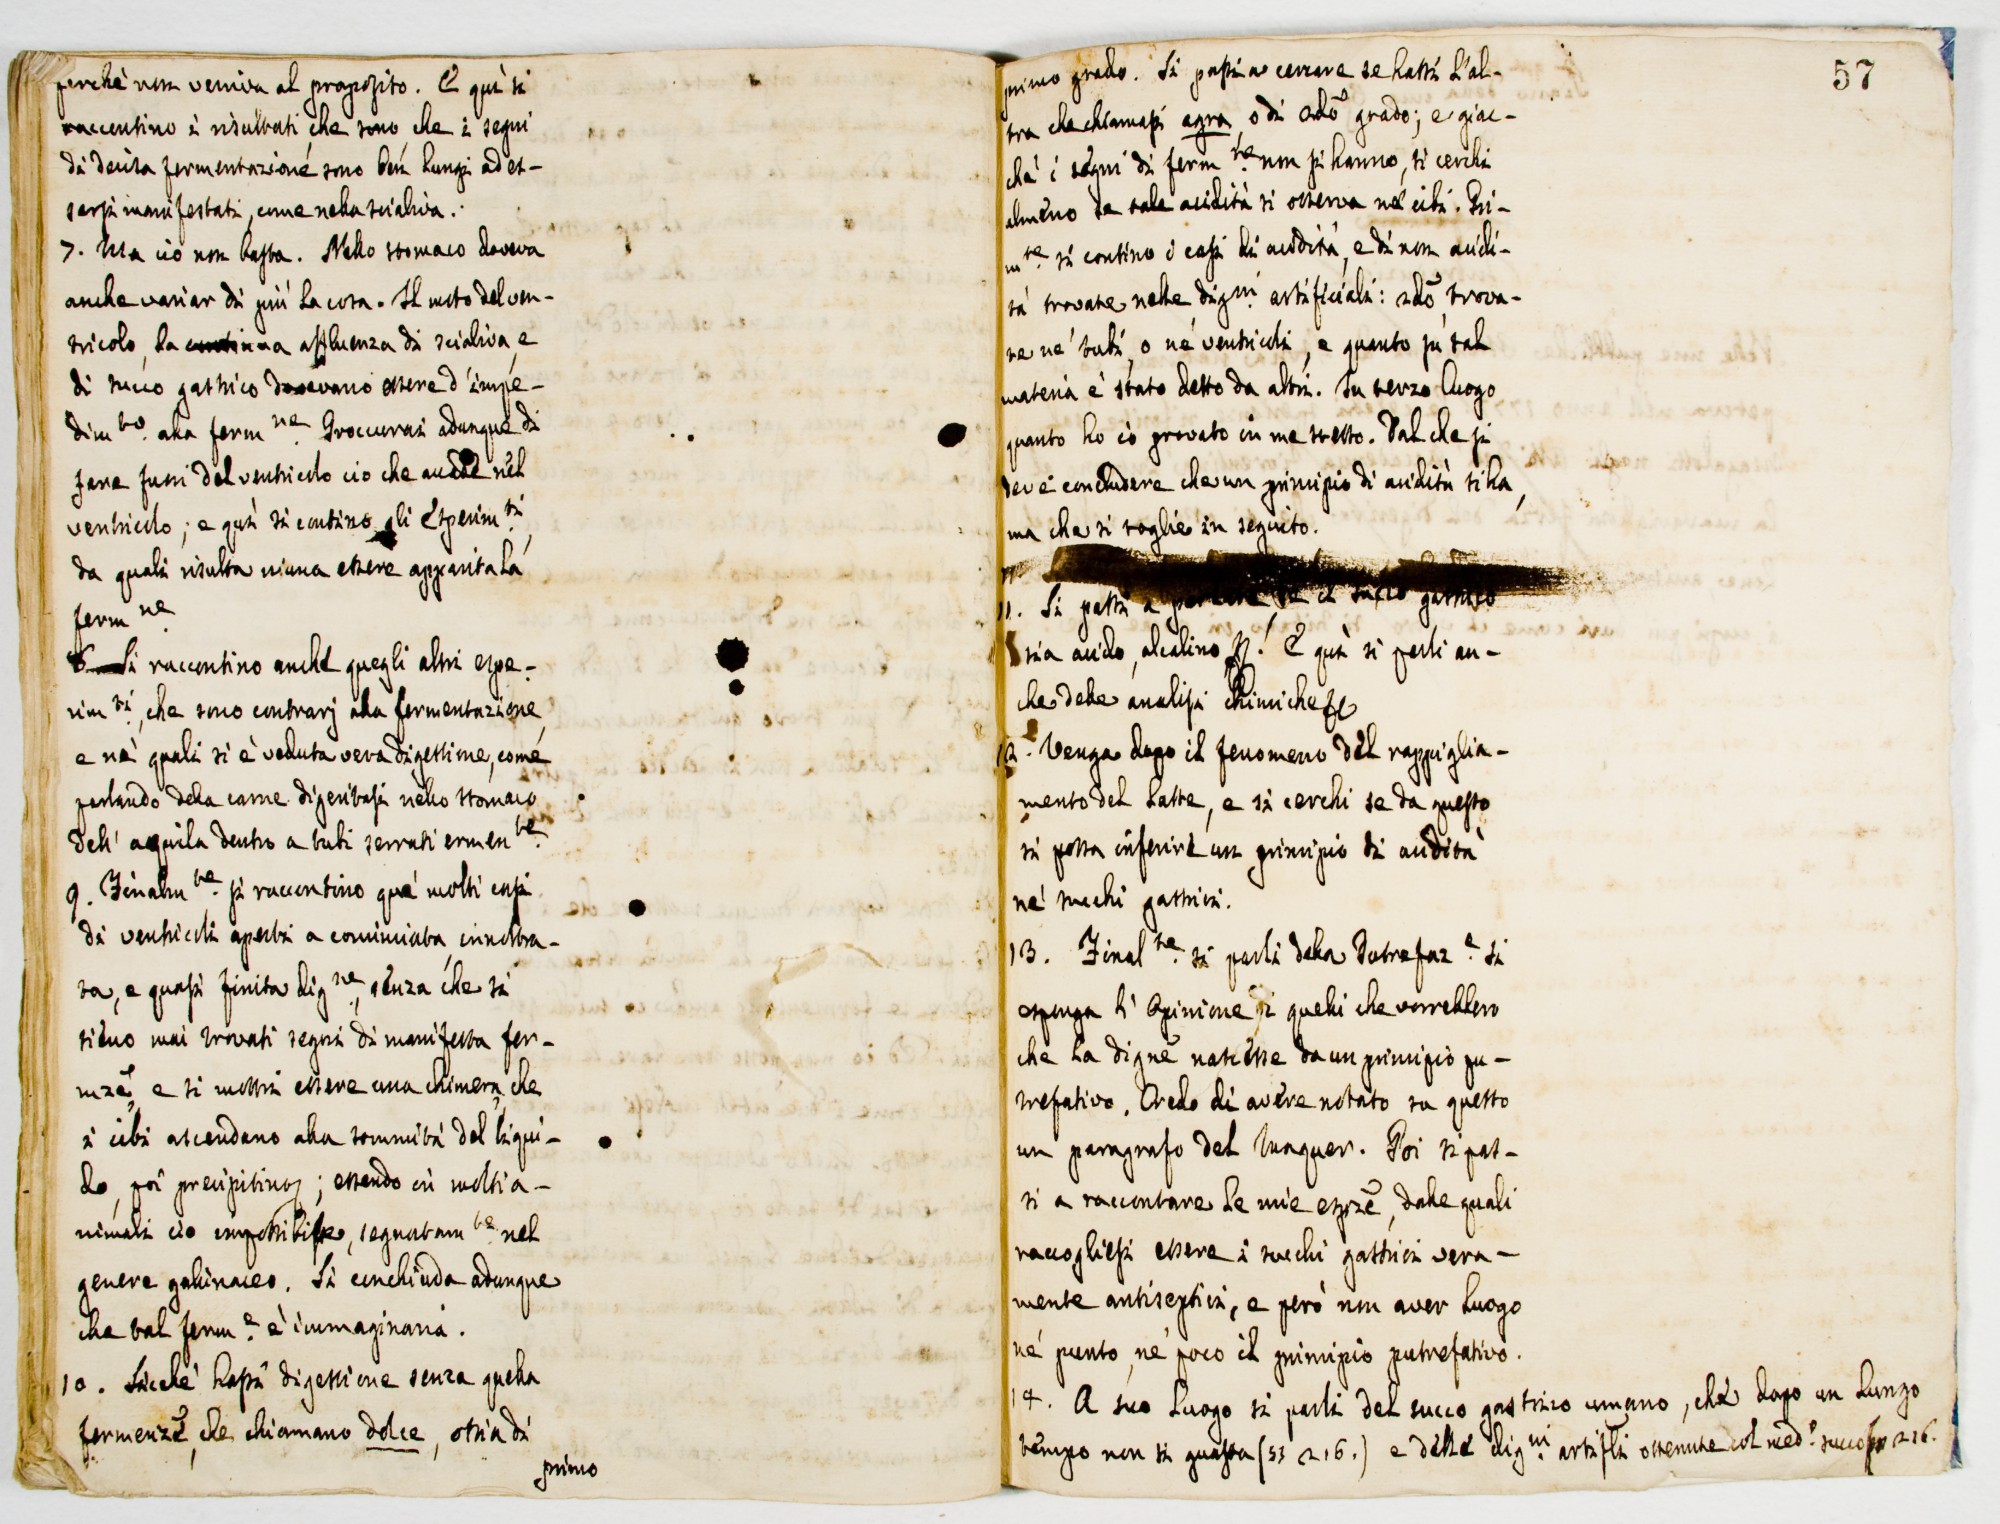 perché non veniva al proposito. E quì si
raccontino i risultati, che sono che i segni
di decisa fermentazione sono ben lungi ad es-
sersi manifestati, come nella scialiva.
7. Ma ciò non basta. Nello stomaco doveva
anche variar di più la cosa. Il moto del ven-
tricolo, la continua affluenza di scialiva, e
di succo gastrico dovevano essere d'impe-
dim.to alla ferm.ne Proccurai adunque di
fare fuori del ventricolo ciò che accade nel
ventricolo; e quì si contino gli Esperim.ti,
da quali risulta niuna essere apparita la
ferm.ne
8. Si raccontino anche quegli altri espe-
rim.ti, che sono contrarj alla fermentazione,
e ne' quali si è veduta vera digestione, come
parlando della carne digeritasi nello stomaco
dell'aquila dentro a tubi serrati ermen.te
9. Finalm.te si raccontino quá molti casi
di ventricoli aperti a cominciata, innoltra-
ta, e quasi finita dig.ne, senza che si
sieno mai trovati segni di manifesta fer-
mzẽ, e si mostri essere una chimera, che
i cibi ascendano alla sommità del liqui-
do, poi precipitino; essendo in molti a-
nimali ciò impossibile, segnatam.te nel
genere gallinaceo. Si conchiuda adunque
che tal ferm.e è immaginaria.
10. Sicché hassi digestione senza quella
fermenzẽ, che chiamano dolce, ossia di
primo
57
primo grado. Si passi a cercare se hassi l'al-
tra che chiamasi agra, o di 2dõ grado; e giac-
ché i segni di ferm.ne non si hanno, si cerchi
almeno se tale acidità si osserva nei cibi. Pri-
m.te si contino i casi di acidità, e di non acidi-
tà trovate nelle dig.ni artificiali: 2dõ, trova-
te ne' tubi, o ne' ventricoli, e quanto sù tal
materia è stato detto da altri. In terzo luogo
quanto ho io provato in me stesso. Dal che si
deve concludere che un principio di acidità si ha,
ma che si toglie in seguito.
11. Si passi a se il succo gastrico
sia acido, alcalino E quì si parli an-
che delle analisi chimiche
12. Venga dopo il fenomeno del rappiglia-
mento del latte, e si cerchi se da questo
si possa inferire un principio di acidità
ne' succhi gastrici.
13. Final.te si parli della Putrefaz.e Si
esponga l'opinione di quelli che vorrebbero
che la dignẽ nascesse da un principio pu-
trefativo. Credo di avere notato su questo
un paragrafo del Maquer. Poi si pas-
si a raccontare le mie esprzẽ, dalle quali
raccogliesi essere i succhi gastrici vera-
mente antiseptici, e però non aver luogo
né punto, né poco il principio putrefativo.
14. A suo luogo si parli del succo gastrico umano, che dopo un lungo
tempo non si guasta (§§ 216.) e delle dig.ni artifli ottenute col med.o succo 216.